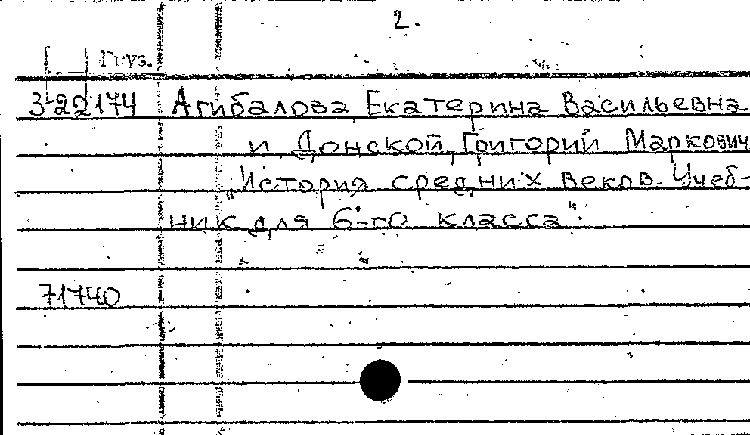 2.
Груз.
3-22174 Агибалова Екатерина Васильевна
и Донской, Григорий Маркович
„История средних веков. Учеб-
ник для 6-го класса".
71740